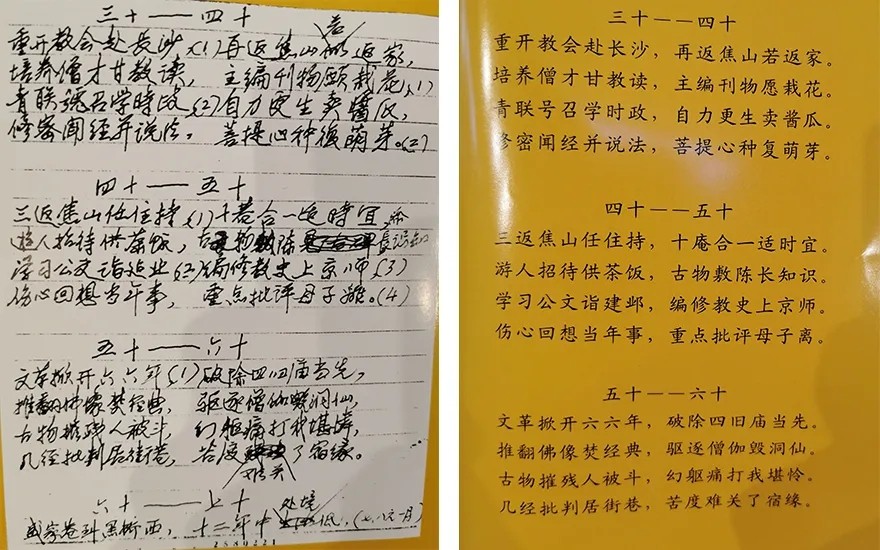 三十——四十
重开教会赴长沙,(1)再返焦山若返家,
培养僧才甘教读, 主编刊物愿栽花,(1)
青联号召学时政,(2)自力更生卖酱瓜,
修密闻经并说法, 菩提心种复萌芽。(2)
四十——五十
三返焦山任住持,(1)十若合一适时宜,
游人招待供茶饭, 古物陈長识知
学习公文诣业(2)编修教史上京师,(3)
伤心回想当年事, 重点批评母子離。(4)
五十——六十
文革掀开六六年,(1)破除四旧庙当先,
推翻佛像焚经典, 驱逐僧伽毁洞仙,
古物摧残人被斗, 幻躯痛打我堪憐,
几经批判居街巷, 苦度难关了宿缘。
六十——七十
戚家巷到黑桥西, 十二年中处境低,
三十——四十
重开教会赴长沙,再返焦山若返家。
培养僧才甘教读,主编刊物愿栽花。
青联号召学时政,自力更生卖酱瓜。
修密闻经并说法,菩提心种复萌芽。
四十——五十
三返焦山任住持,十庵合一适时宜。
游人招待供茶饭,古物敷陈长知识。
学习公文诣建邺,编修教史上京师。
伤心回想当年事,重点批评母子离。
五十——六十
文革掀开六六年,破除四旧庙当先。
推翻佛像焚经典,驱逐僧伽毁洞仙。
古物摧残人被斗,幻躯痛打我堪怜。
几经批判居街巷,苦度难关了宿缘。